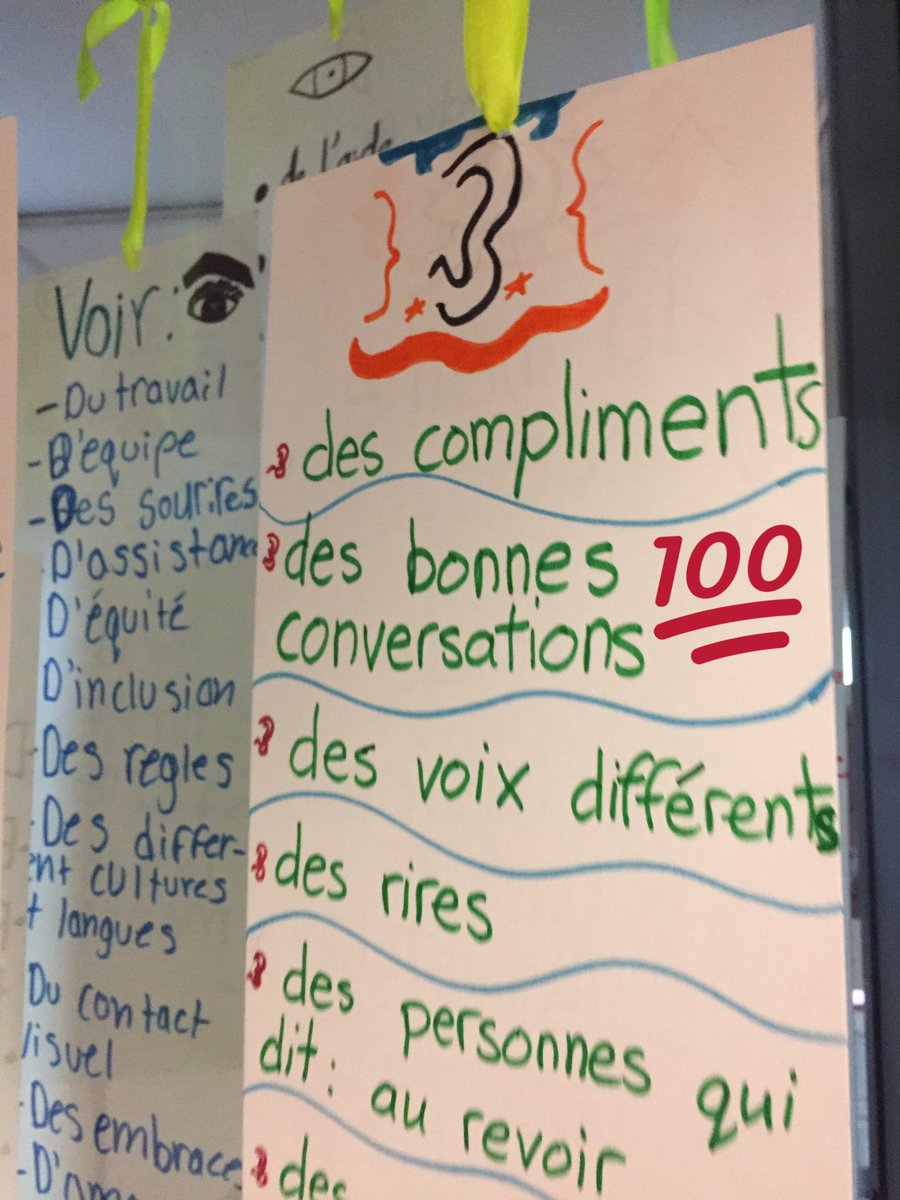 de l'aide
Voir:
- Du travail
- D'équipe
- Des sourires
D'assistance
D'équité
D'inclusion
Des regles
Des differ-
ent cultures
et langues
Du contact
visuel
- Des embraces
des compliments
des bonnes 100
conversations
des voix différents
des rires
des personnes qui
dit: au revoir
des